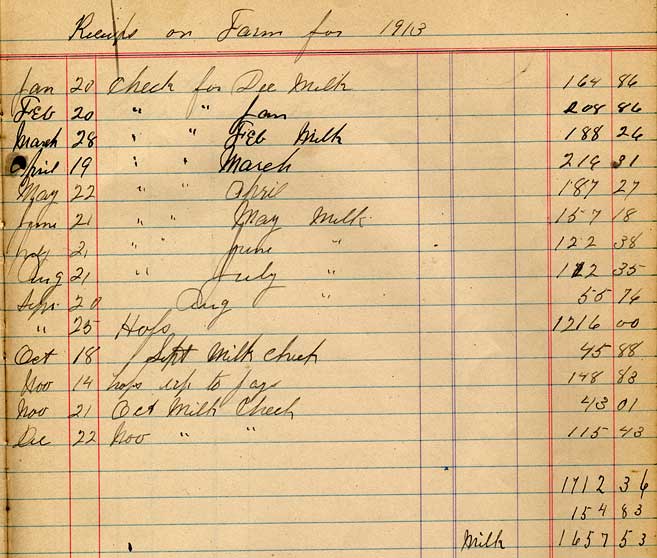 Receips on Farm for 1913
Jan 20 Check for Dec Milk 164 86
Feb 20 " " Jan 208 86
March 28 " " Feb Milk 188 26
April 19 " " March 216 31
May 22 " " April 187 27
June 21 " " May Milk 157 18
July 21 " " June " 122 38
Aug 21 " " July " 112 35
Sept 20 Aug " 55 76
" 25 Hops 1216 00
Oct 18 Sept Milk Check 45 88
Nov 14 hops 148 83
Nov 21 Oct Milk Check 43 01
Dec 22 Nov " " 115 43
1712 36
154 83
Milk 1657 53